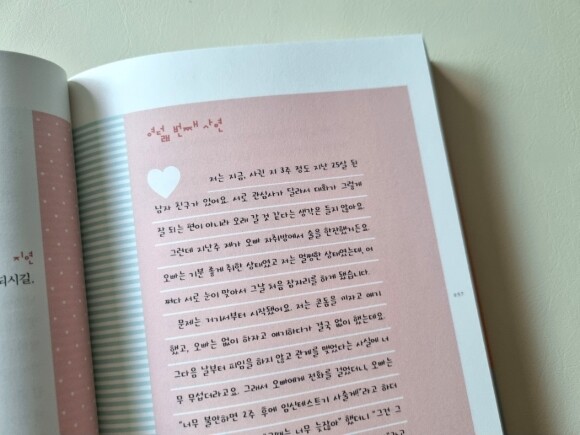 지연
되시길.
여덟 번째 사연
저는 지금, 사귄 지 3주 정도 지난 25살 된
남자 친구가 있어요. 서로 관심사가 달라서 대화가 그렇게
잘 되는 편이 아니라 오래 갈 것 같다는 생각은 들지 않아요.
그런데 지난주 제가 오빠 자취방에서 술을 한잔했거든요.
오빠는 기분 좋게 취한 상태였고 저는 멀쩡한 상태였는데, 어
쩌다 서로 눈이 맞아서 그날 처음 잠자리를 하게 됐습니다.
문제는 거기서부터 시작됐어요. 저는 콘돔을 끼라고 얘기
했고, 오빠는 없이 하자고 얘기하다가 결국 없이 했는데요.
그다음 날부터 피임을 하지 않고 관계를 맺었다는 사실에 너
무 무섭더라고요. 그래서 오빠에게 전화를 걸었더니, 오빠는
"너무 불안하면 2주 후에 임신테스트기 사줄게!"라고 하더
"그때는 너무 늦잖아" 했더니 "그건 그
라고
057